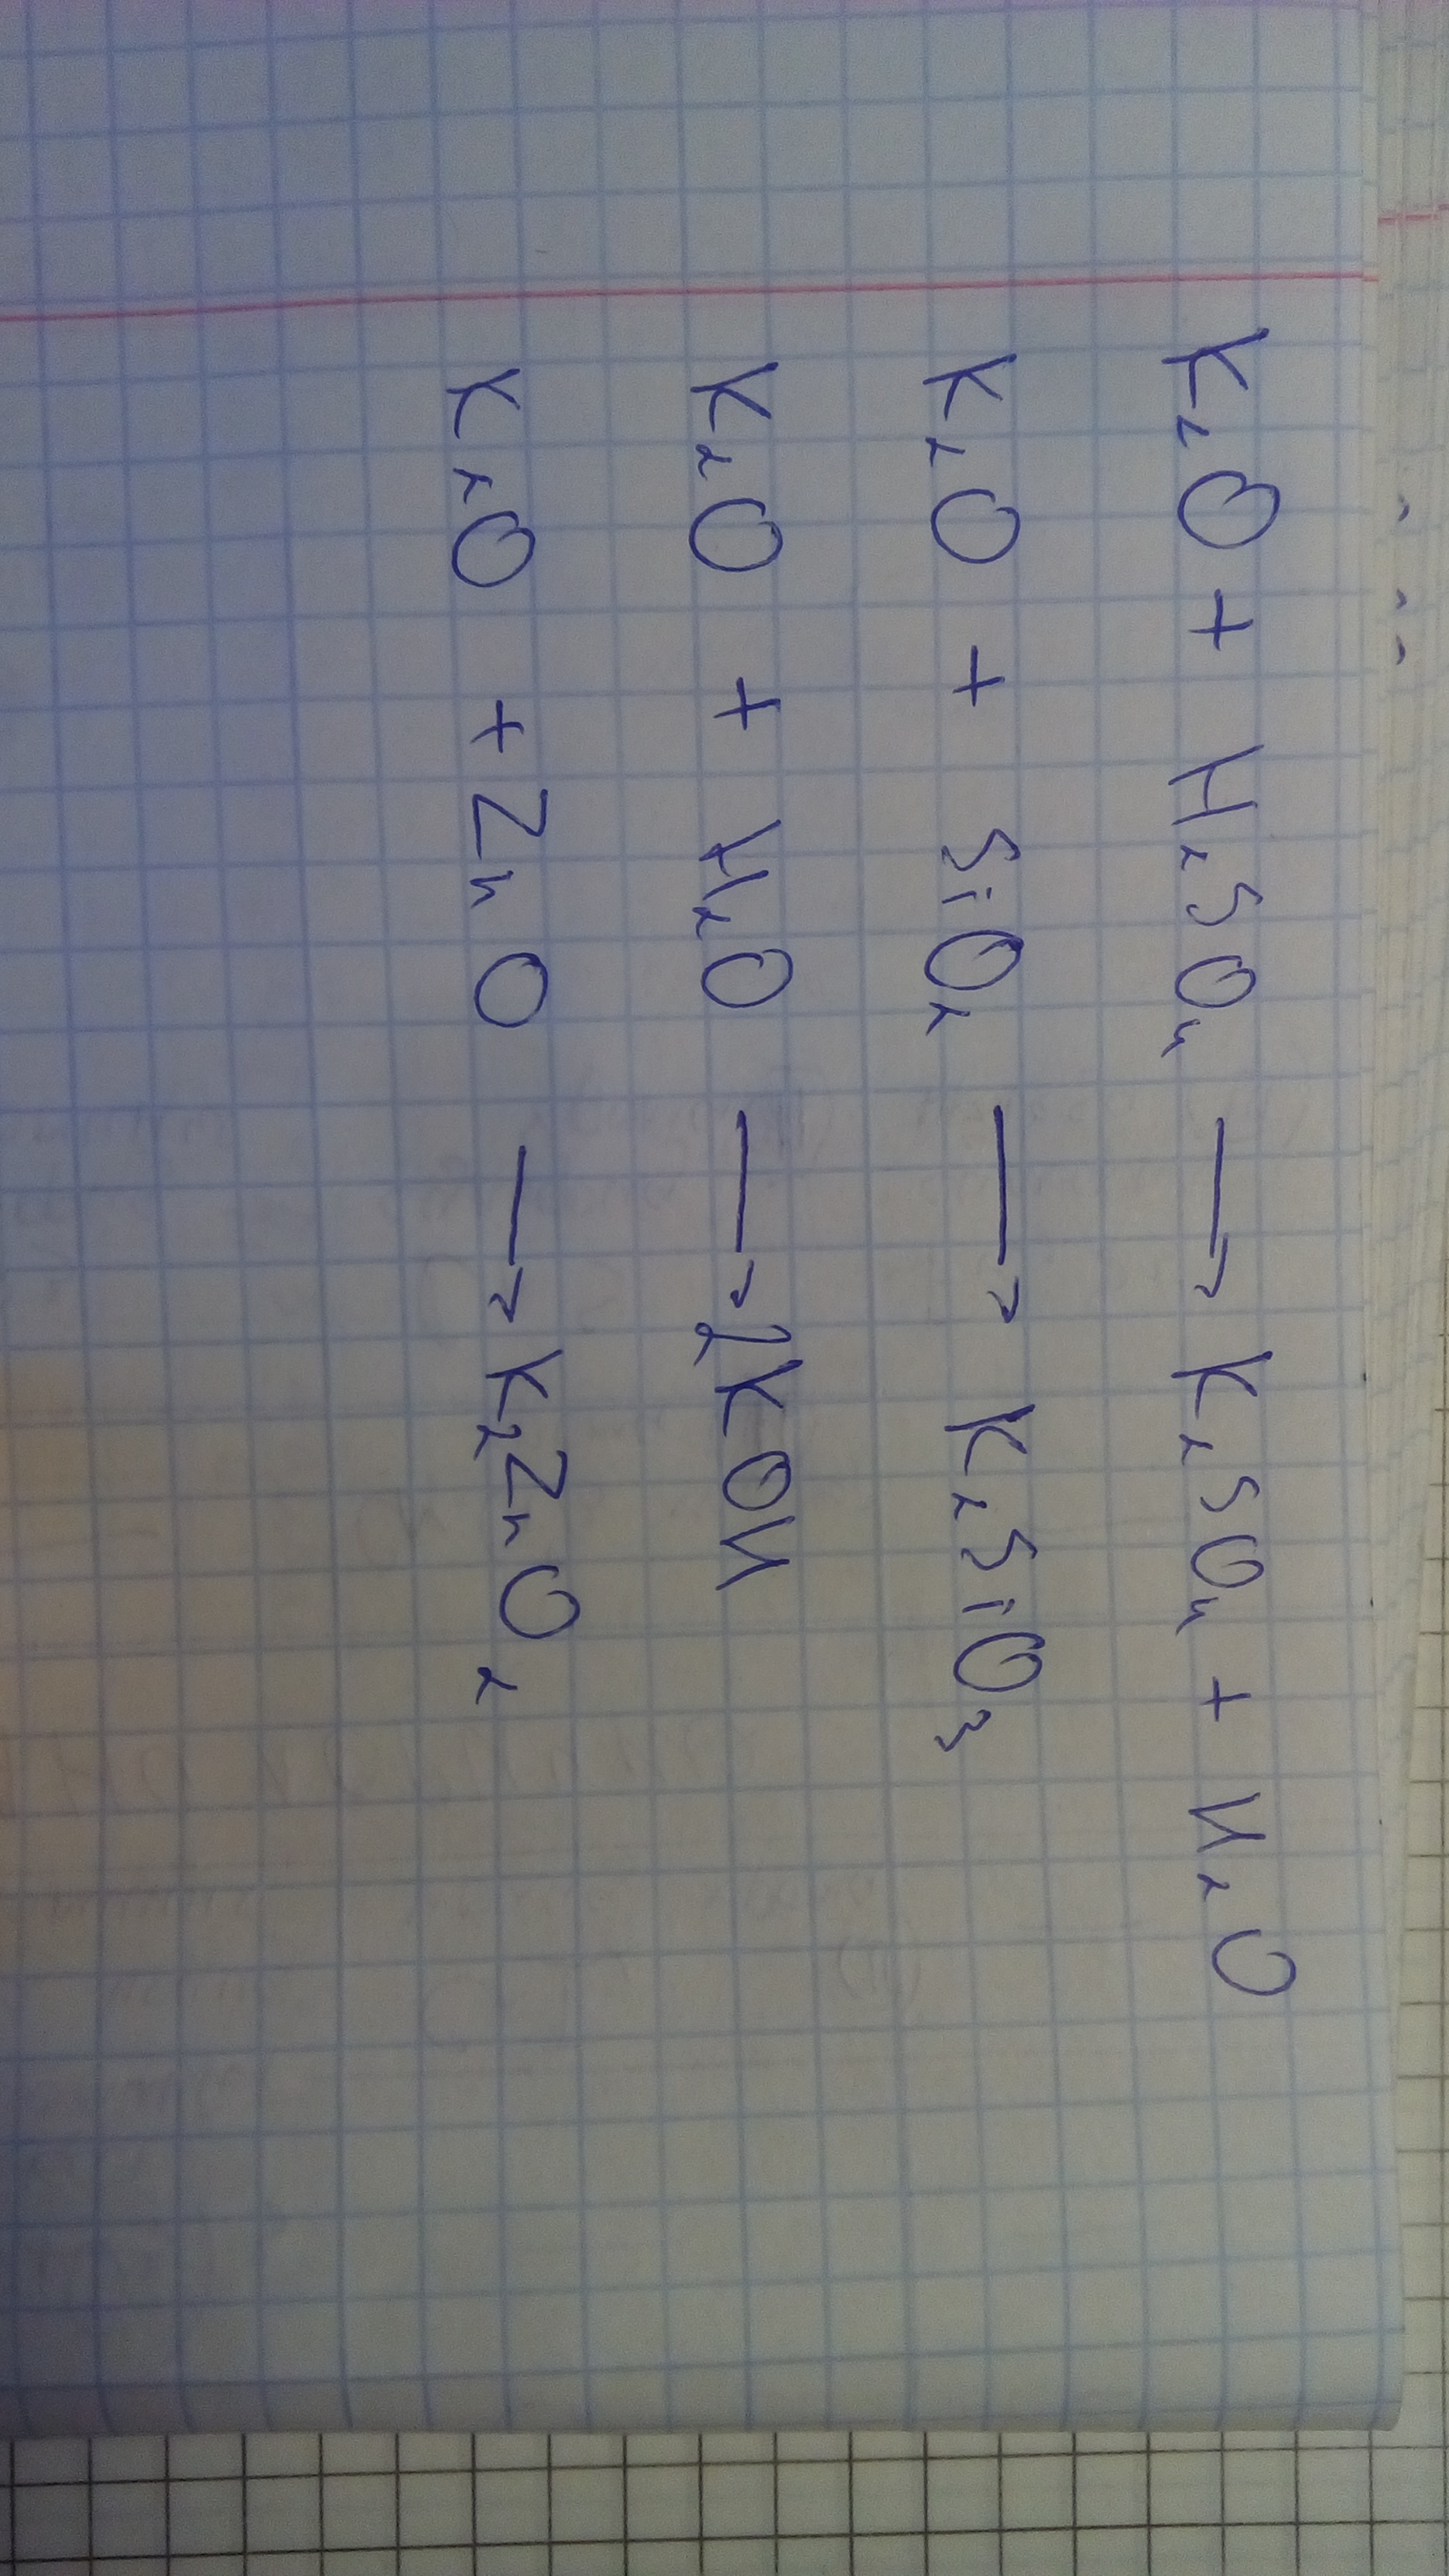 K₂O + H₂SO₄ → K₂SO₄ + H₂O
K₂O + SiO₂ → K₂SiO₃
K₂O + H₂O → 2KOH
K₂O + ZnO → K₂ZnO₂